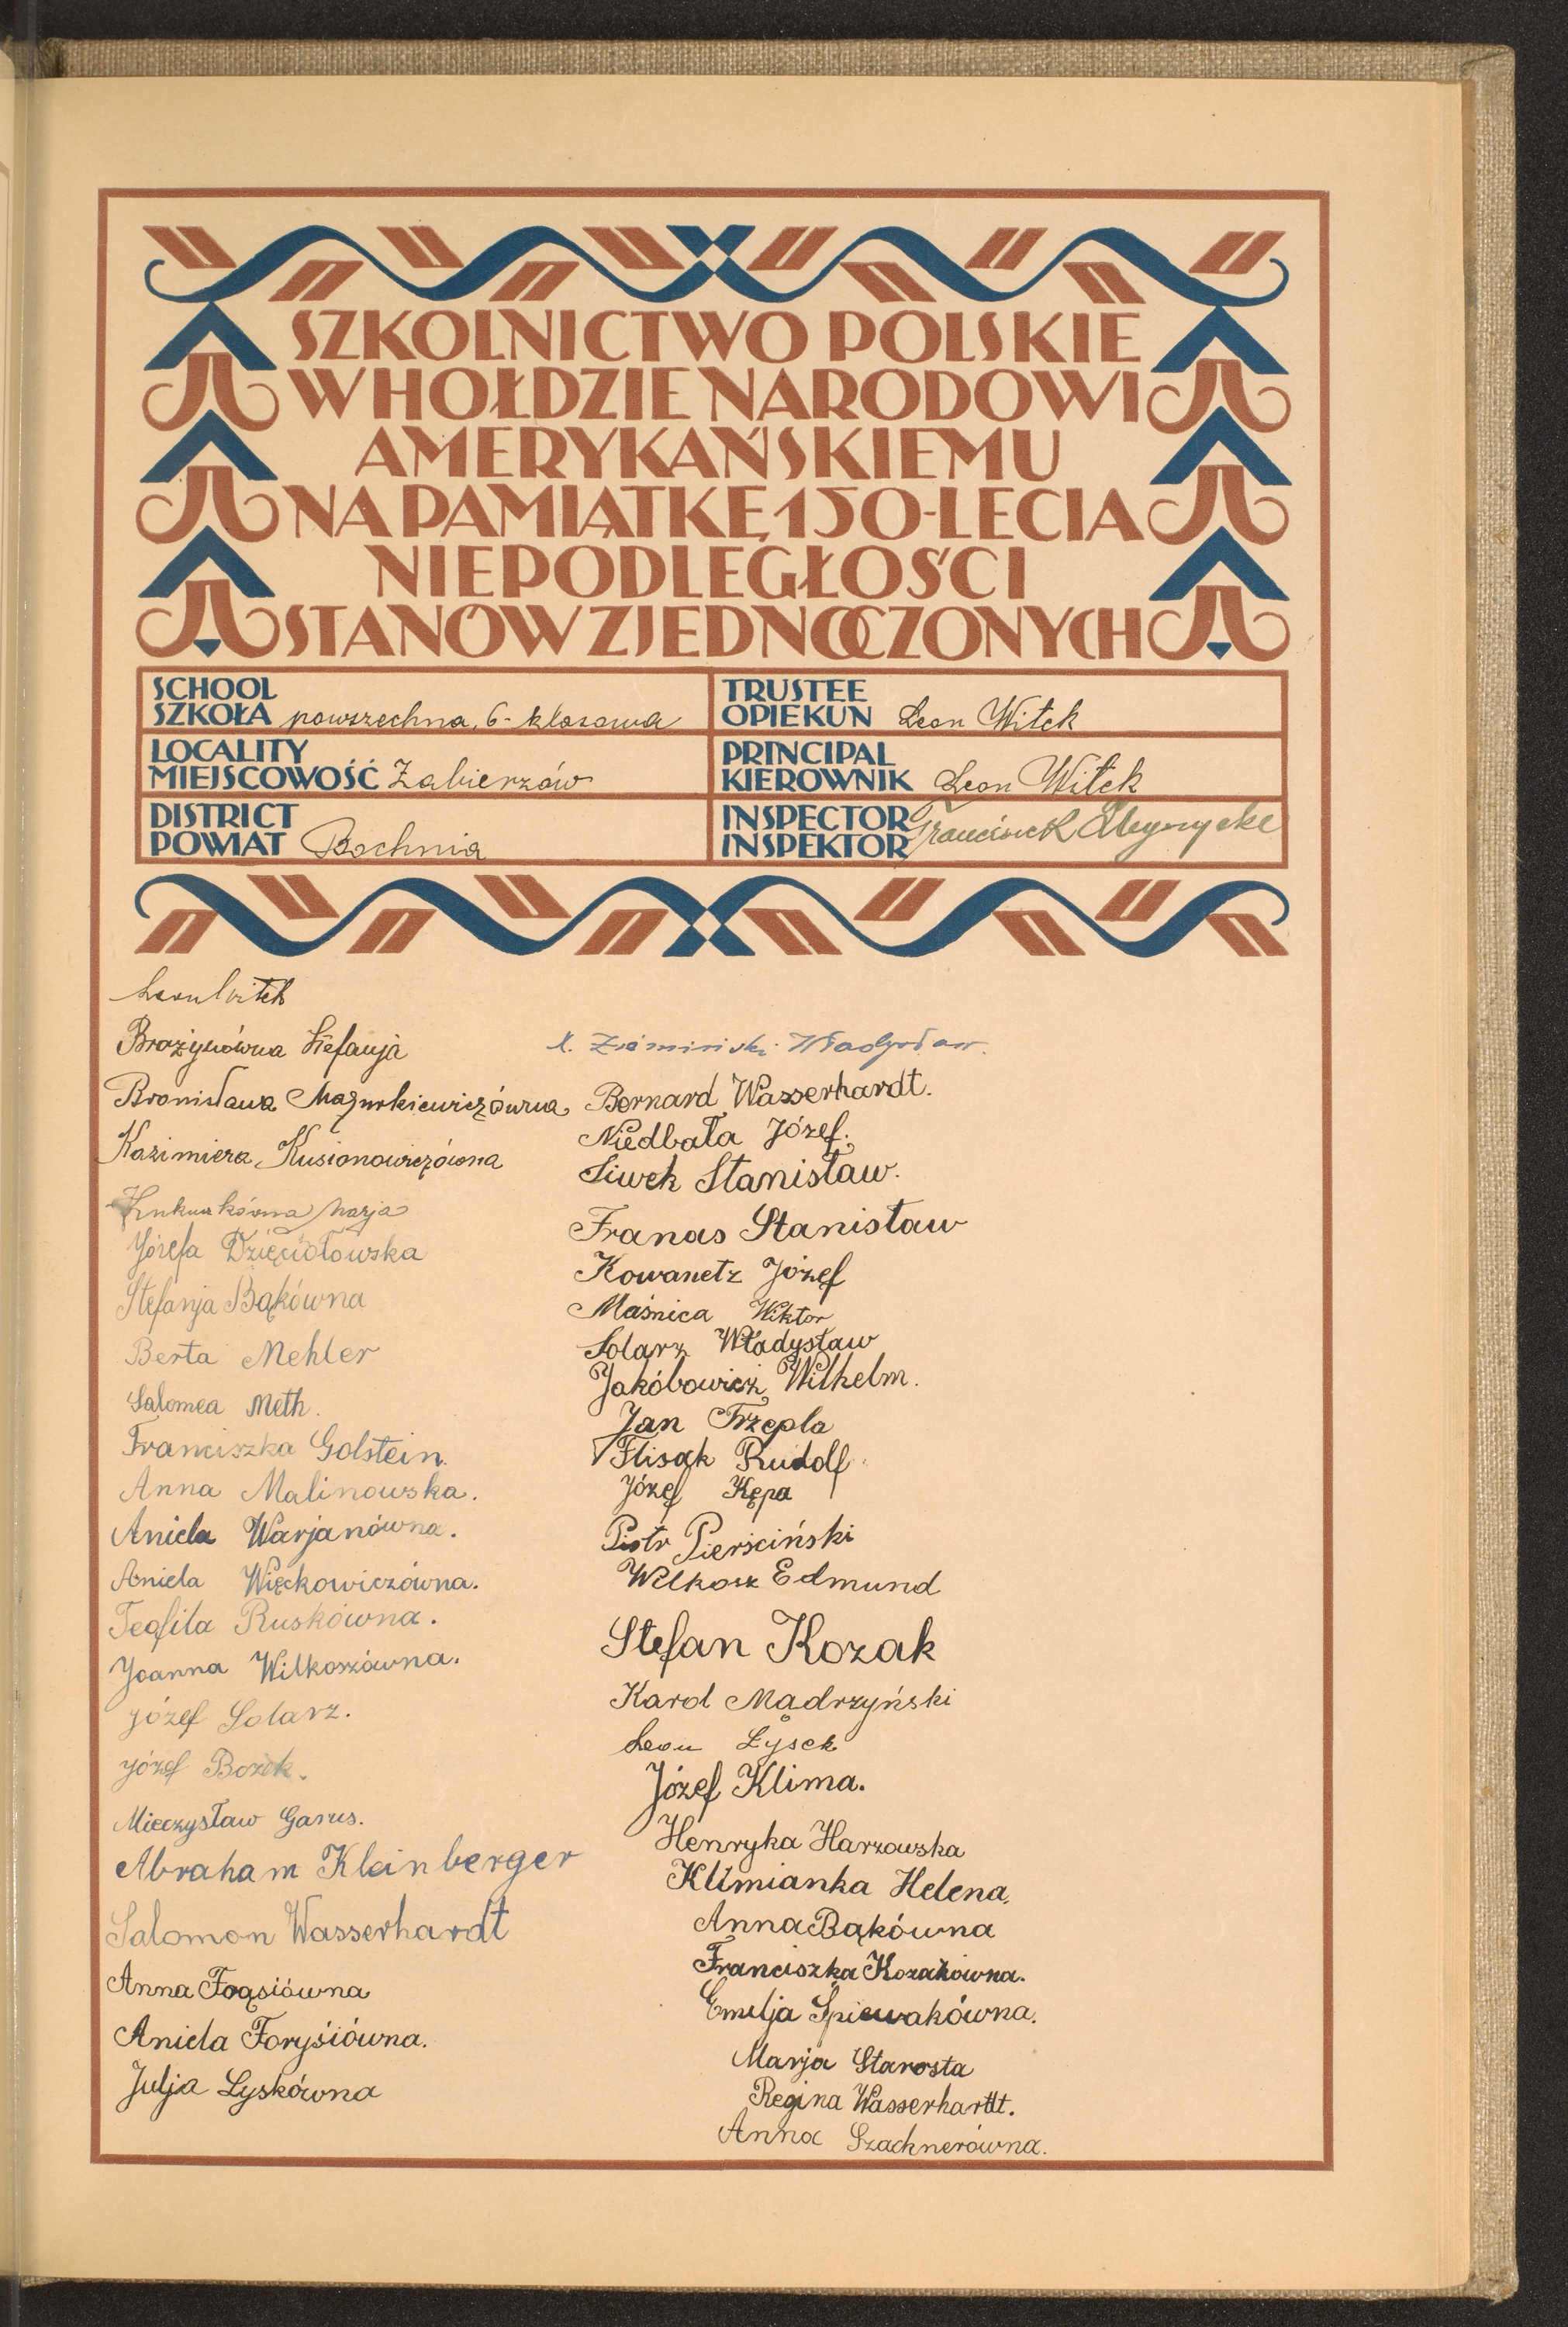 SZKOLNICTWO POLSKIE
W HOŁDZIE NARODOWI
AMERYKAŃSKIEMU
NA PAMIĄTKĘ 150-LECIA
NIEPODLEGŁOŚCI
STANÓW ZJEDNOCZONYCH
SCHOOL
SZKOŁA powszechna, 6-klasowa
TRUSTEE
OPIEKUN Leon Witek
LOCALITY
MIEJSCOWOŚĆ Zabierzów
PRINCIPAL
KIEROWNIK Leon Witek
DISTRICT
POWIAT Bochnia
INSPECTOR
INSPEKTOR Franciszek
Leon Witek
Brożynówna Stefanja
Bronisława Mazurkiewiczówna
Kazimiera Kusionowiczówna
Marja
Józefa Dzięciołowska
Stefanja Bąkówna
Berta Mehler
Salomea Meth.
Franciszka Golstein.
Anna Malinowska.
Aniela Warjanówna.
Aniela Więckowiczówna.
Teofila Ruskówna.
Joanna Wilkoszówna.
Józef Solarz.
Józef Bożek.
Mieczysław Garus.
Abraham Kleinberger
Salomon Wasserhardt
Anna Frąsiówna
Aniela Foryśiówna.
Julja Łyskówna
X. Ziemiński Władysław.
Bernard Wasserhardt.
Niedbała Józef.
Siwek Stanisław.
Franas Stanisław
Kowanetz Józef
Maśnica Wiktor
Solarz Władysław
Jakóbowicz Wilhelm.
Jan Trzepla
Flisak Rudolf
Józef Kępa
Piotr Pierściński
Wilkosz Edmund
Stefan Kozak
Karol Mądrzyński
Leon Łysek
Józef Klima.
Henryka Harzowska
Klimianka Helena.
Anna Bąkówna
Franciszka Kozakówna.
Emilja Śpiewakówna.
Marja Starosta
Regina Wasserhardt.
Anna Szachnerówna.